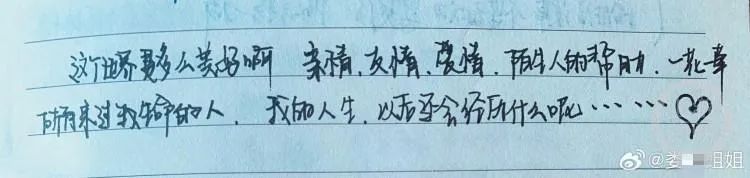 这个世界是多么美好啊 亲情、友情、爱情、陌生人的帮助、一花一草
所有来过我生命的人、我的人生、以后还会经历什么呢……♡
@娄 姐姐